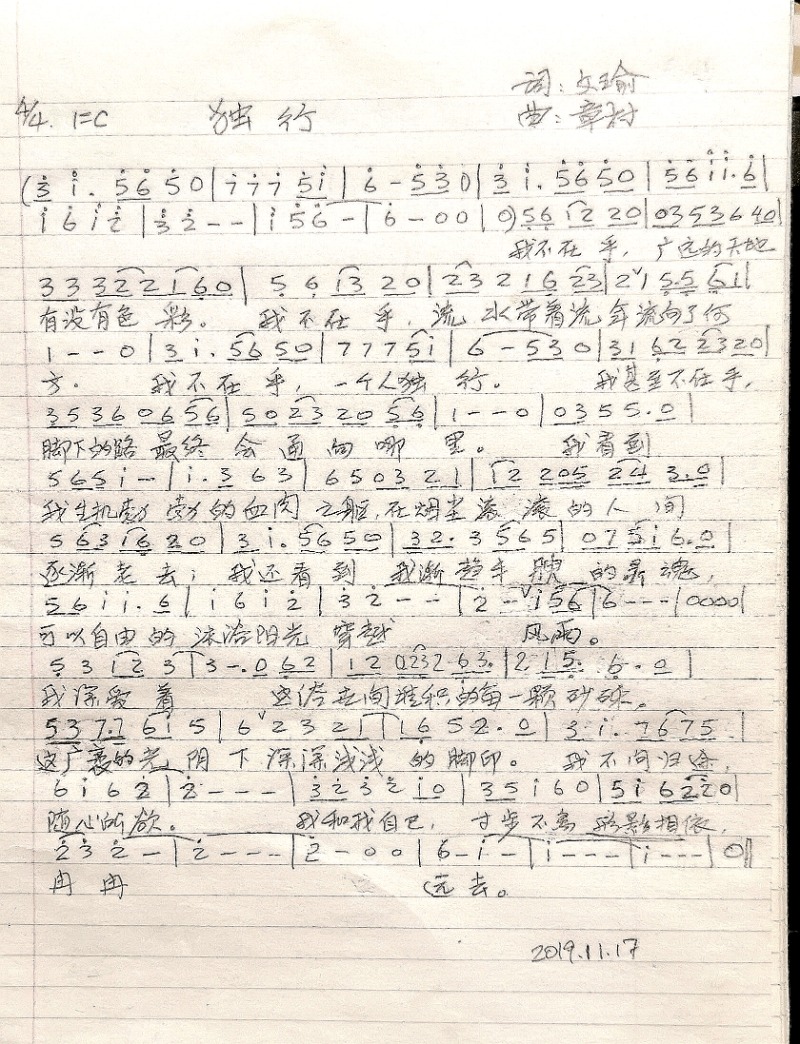 词：文瑜
4/4. 1=C 独行 曲：章村
(3 i. 56 50|777 5i|6 - 530|3 i. 5650|56ii.6|
i6i2|32--|i56-|6-00|0)56 12 20|0353640|
我不在乎，广远的天地
33322160|5 6 13 20|23 21 6 23|2 1 5.5 61|
有没有色彩。我不在乎，流水带着流年流向了何
1--0|3 i. 56 50|7775i|6-530|31 62 2320|
方。我不在乎，一个人独行。我甚至不在乎，
35360656|50 23 20 56|1--0|0355.0|
脚下的路最终会通向哪里。我看到
565i-|i.363|6503 21|12 205 24 3.0|
我生机勃勃的血肉之躯，在烟尘滚滚的人间
563i620|3i.5650|32.3565|075i6.0|
逐渐老去；我还看到我渐趋丰腴的灵魂，
56ii.6|i6i2|32--|2-i56|6---|0000|
可以自由的沐浴阳光穿越风雨。
53i23|3-.062|12 0232.63.|215.6.0|
我深爱着这俗世间堆积的每一颗砂砾。
537.7 6i5|6 2321|1652.0|3i.7675.|
这广袤的光阴下深深浅浅的脚印。我不问归途，
6i62|2---|3232i0|35i60|5i6220|
随心所欲。我和我自己，寸步不离形影相依，
232-|2---|2-00|6-i-|i---|i---|0||
冉冉远去。
2019.11.17